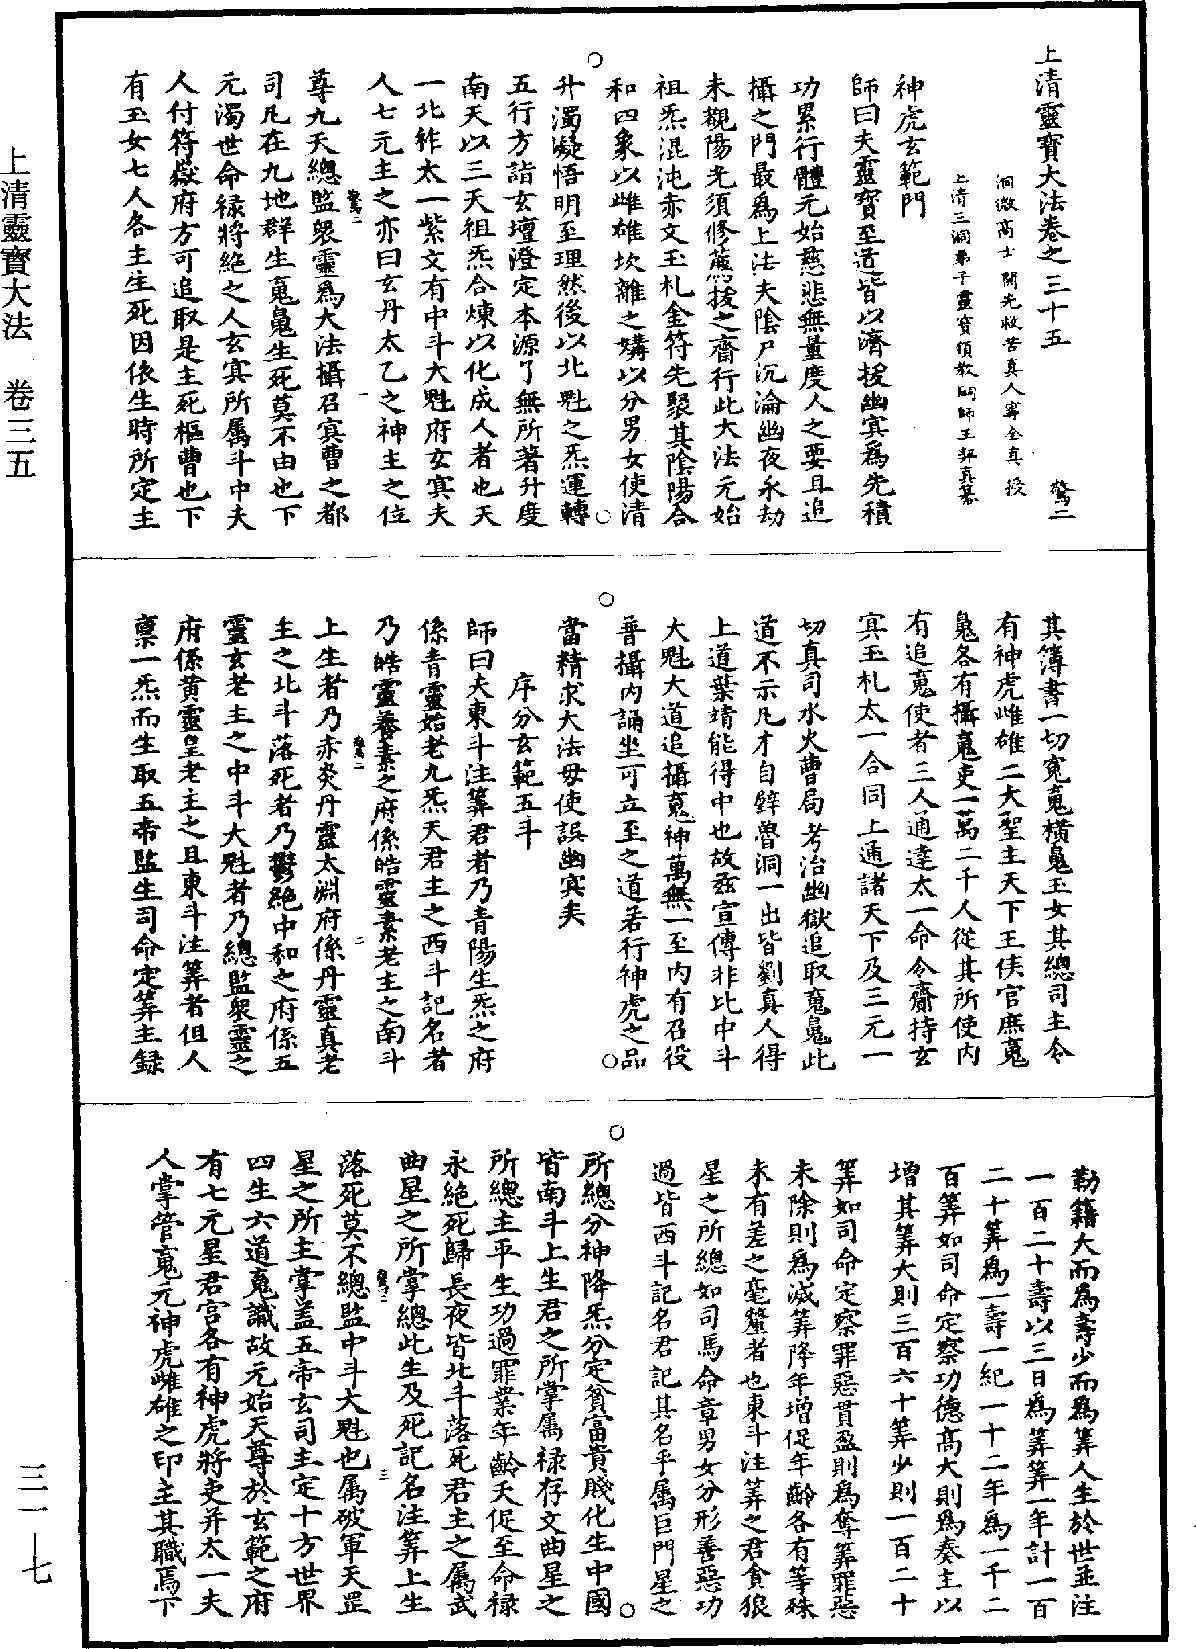 上清靈寶大法卷之三十五　鶩二
洞微高士開光救苦真人甯全真授
上清三洞弟子靈寶領教嗣師王契真纂
神虎玄範門
師曰夫靈寶至道皆以濟拔幽冥爲先積
功累行體元始慈悲無量度人之要且追
攝之門最爲上法夫陰尸沉淪幽夜永劫
未覩陽光須修薦拔之齋行此大法元始
祖炁混沌赤文玉札金符先聚其陰陽合
和四象以雌雄坎離之媾以分男女使清
升濁凝悟明至理然後以北魁之炁運轉
五行方詣玄壇澄定本源了無所著升度
南天以三天祖炁合煉以化成人者也天
一北祚太一紫文有中斗大魁府玄冥夫
人七元主之亦曰玄丹太乙之神主之位
尊九天總監衆靈爲大法攝召冥曹之都
司凡在九地群生䰟鬽生死莫不由也下
元濁世命禄將絶之人玄冥所属斗中夫
人付符嶽府方可追取是主死樞曹也下
有玉女七人各主生死因依生時所定主
其簿書一切寃䰟橫鬽玉女其總司主令
有神虎雌雄二大聖主天下王侯官庶䰟
鬽各有攝䰟吏一萬二千人從其所使内
有追䰟使者三人通達太一命令齎持玄
冥玉札太一合同上通諸天下及三元一
切真司水火曹局考治幽獄追取䰟鬽此
道不示凡才自辟魯洞一出皆劉真人得
上道葉靖能得中也故兹宣傳非比中斗
大魁大道追攝䰟神萬無一至内有召役
普攝内誦坐可立至之道若行神虎之品
當精求大法毋使誤幽冥矣
序分玄範五斗
師曰夫東斗注筭君者乃青陽生炁之府
係青靈始老九炁天君主之西斗記名者
乃皓靈養素之府係皓靈素老主之南斗
上生者乃赤炎丹靈太淵府係丹靈真老
主之北斗落死者乃鬱絶中和之府係五
靈玄老主之中斗大魁者乃總監衆靈之
府係黄靈皇老主之且東斗注筭者但人
禀一炁而生取五帝監生司命定筭主録
勒籍大而爲壽少而爲筭人生於世並注
一百二十壽以三日爲筭筭一年計一百
二十筭爲一壽一紀一十二年爲一千二
百筭如司命定察功德高大則爲奏主以
增其筭大則三百六十筭少則一百二十
筭如司命定察罪惡貫盈則爲奪筭罪惡
未除則爲減筭降年增促年齡各有等殊
未有差之毫釐者也東斗注筭之君貪狼
星之所總如司馬命章男女分形善惡功
過皆西斗記名君記其名乎属巨門星之
所總分神降炁分定貧富貴賤化生中國
皆南斗上生君之所掌属禄存文曲星之
所總主平生功過罪業年齡夭促至命禄
永絶死歸長夜皆北斗落死君主之属武
曲星之所掌總此生及死記名注筭上生
落死莫不總監中斗大魁也属破軍天罡
星之所主掌盖五帝玄司主定十方世界
四生六道䰟識故元始天尊於玄範之府
有七元星君宫各有神虎將吏并太一夫
人掌管䰟元神虎雌雄之印主其職焉下
上清靈寶大法　卷三五
三一—七